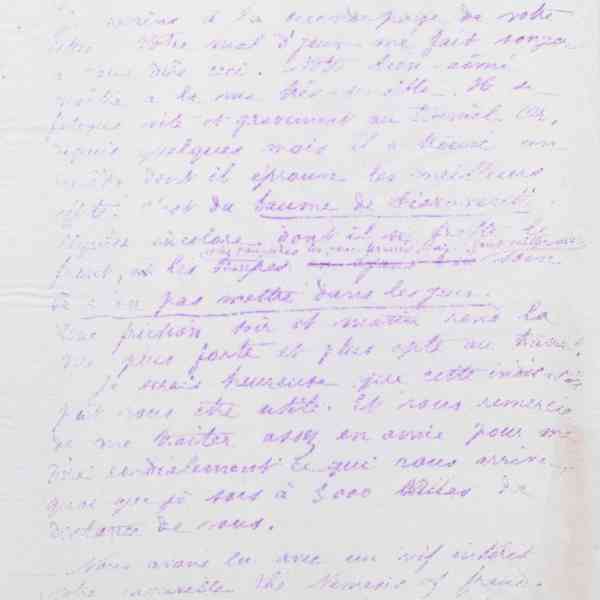 à la seconde page de votre
votre mal d'yeux me fait songer
à vous dire ceci. Notre bien-aimé
maître a la vue très sensible. Il se
fatigue vite et gravement au travail. Or,
depuis quelques mois il a trouvé un
dont il éprouve les meilleurs
effets. C'est du baume de
liquide incolore dont il se frotte le
front, et les tempes soin
de n'en pas mettre dans les yeux.
Une friction soir et matin rend la
vue plus forte et plus apte au travail.
Je serais heureuse que cette indication
put vous être utile. Et vous remercie
de me traiter assez en amie pour me
dire cordialement ce qui vous arrive,
quoi que je sois à 3000 milles de
distance de vous.
Nous avons lu avec un vif intérêt
votre nouvelle The Nemesis of